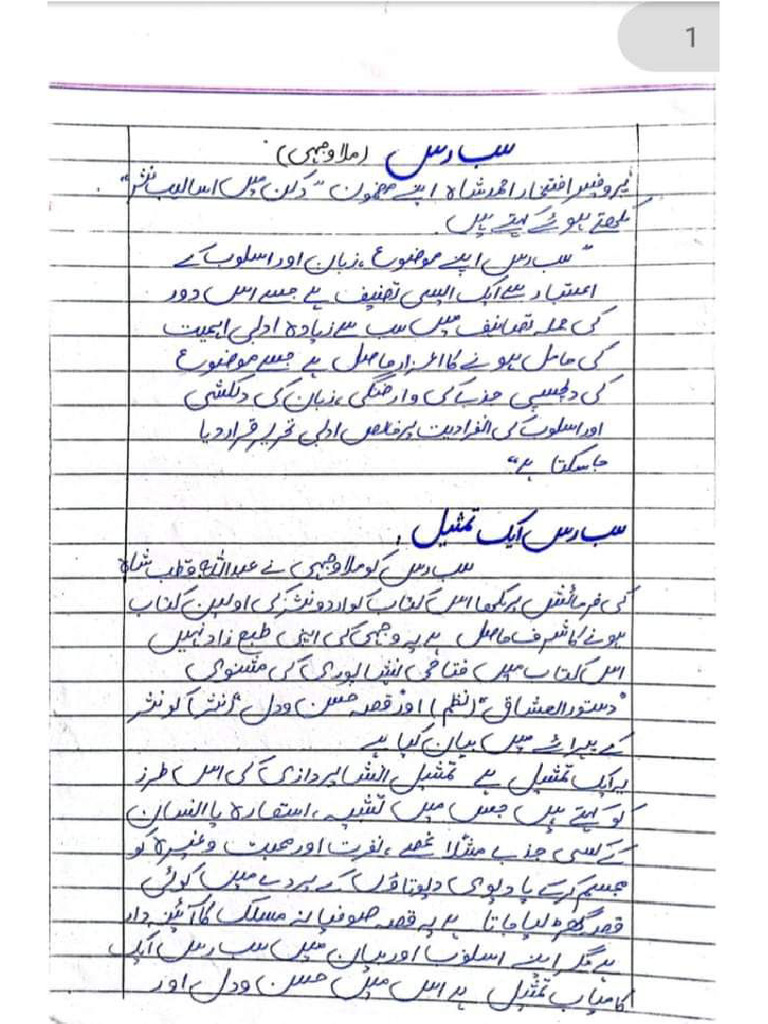 1
سب رس (ملا وجہی)
پروفیسر افتخار احمد شاہ اپنے مضمون "دکن میں اسالیب نثر"
لکھتے ہوئے کہتے ہیں۔
"سب رس اپنے موضوع، زبان اور اسلوب کے
اعتبار سے ایک ایسی تصنیف ہے جسے اس دور
کی جملہ تصانیف میں سب سے زیادہ ادبی اہمیت
کی حامل ہونے کا اعزاز حاصل ہے جسے موضوع
کی دلچسپی جذبے کی وارفتگی، زبان کی دلکشی
اور اسلوب کی انفرادیت پر خالص ادبی تحریر قرار دیا
جا سکتا ہے"
سب رس ایک تمثیل:
سب رس کو ملا وجہی نے عبداللہ قطب شاہ
کی فرمائش پر لکھا اس کتاب کو اردو نثر کی اولین کتاب
ہونے کا شرف حاصل ہے یہ وجہی کی اپنی طبع زاد نہیں
اس کتاب میں فتاحی نیشاپوری کی مثنوی
"دستور العشاق" (نظم) اور قصہ حسن و دل (نثر) کو نثر
کے پیرائے میں بیان کیا ہے
یہ ایک تمثیل ہے تمثیل انشا پردازی کی اس طرز
کو کہتے ہیں جس میں تشبیہ، استعارہ یا انسان
کے کسی جذبے مثلاً غصے، نفرت اور محبت وغیرہ کو
مجسم کر کے یا دیوی دیوتاؤں کے پردے میں کوئی
قصہ گھڑ لیا جاتا ہے یہ قصہ صوفیانہ مسلک کا آئینہ دار
ہے مگر اپنے اسلوب اور بیان میں سب رس ایک
کامیاب تمثیل ہے اس میں حسن و دل اور